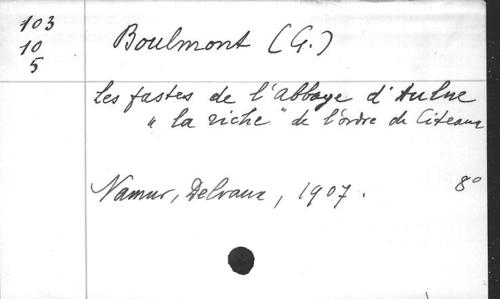 103
10
5
Boulmont (G.)
Les fastes de l'abbaye d'Aulne
"la riche" de l'ordre de Citeaux
Namur, Delvaux, 1907. 8°